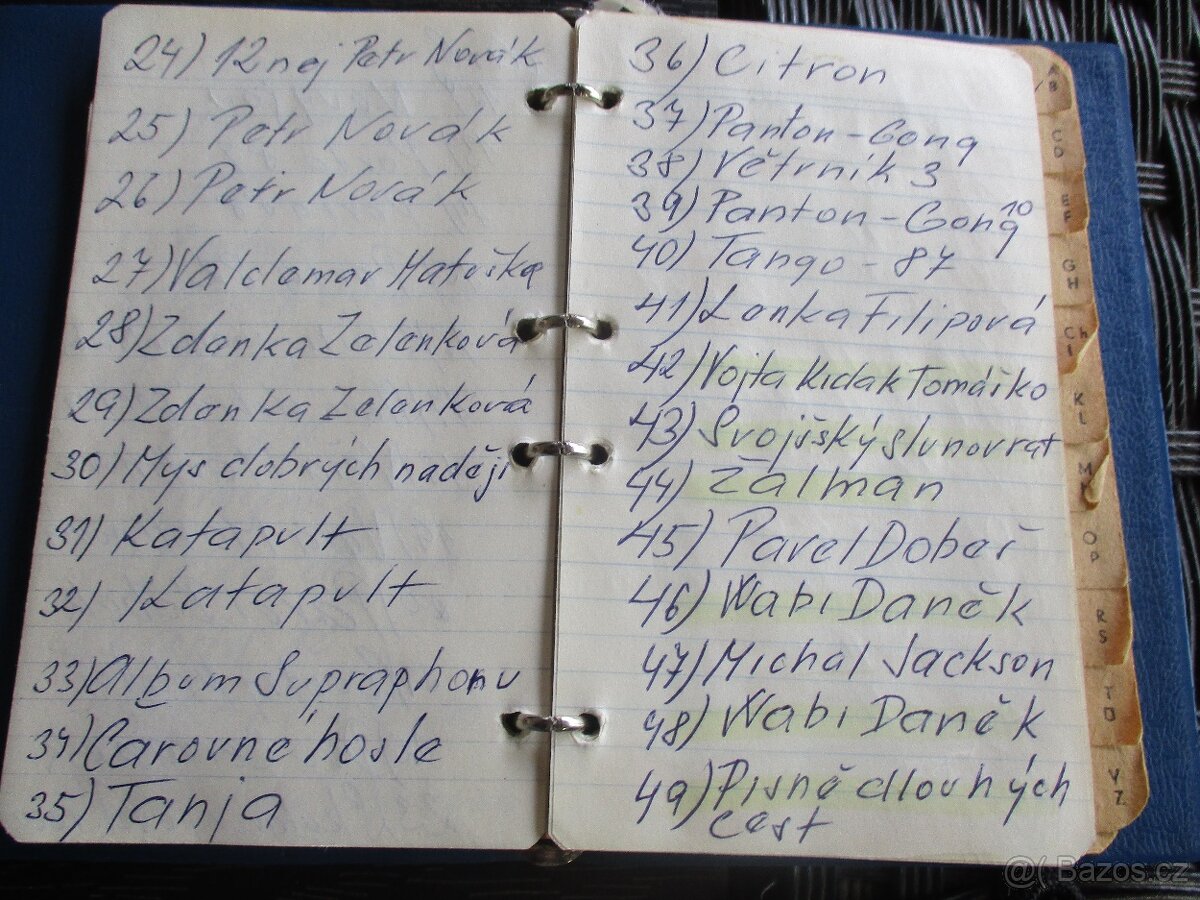 24) 12 nej Petr Novák
25) Petr Novák
26) Petr Novák
27) Valdemar Matuška
28) Zdenka Zelenková
29) Zdenka Zelenková
30) Mys dobrých nadějí
31) Katapult
32) Katapult
33) Album Supraphonu
34) Čarovné hosle
35) Tanja
36) Citron
37) Panton - Gong
38) Větrník 3
39) Panton - Gong 10
40) Tango - 87
41) Lenka Filipová
42) Vojta Kiďak Tomáško
43) Svojšský slunovrat
44) Žalman
45) Pavel Dobeš
46) Wabi Daněk
47) Michal Jackson
48) Wabi Daněk
49) Písně dlouhých
cest
A B
C D
E F
G H
Ch I
K L
M N
O P
R S
T U
V Z
@( Bazos.cz